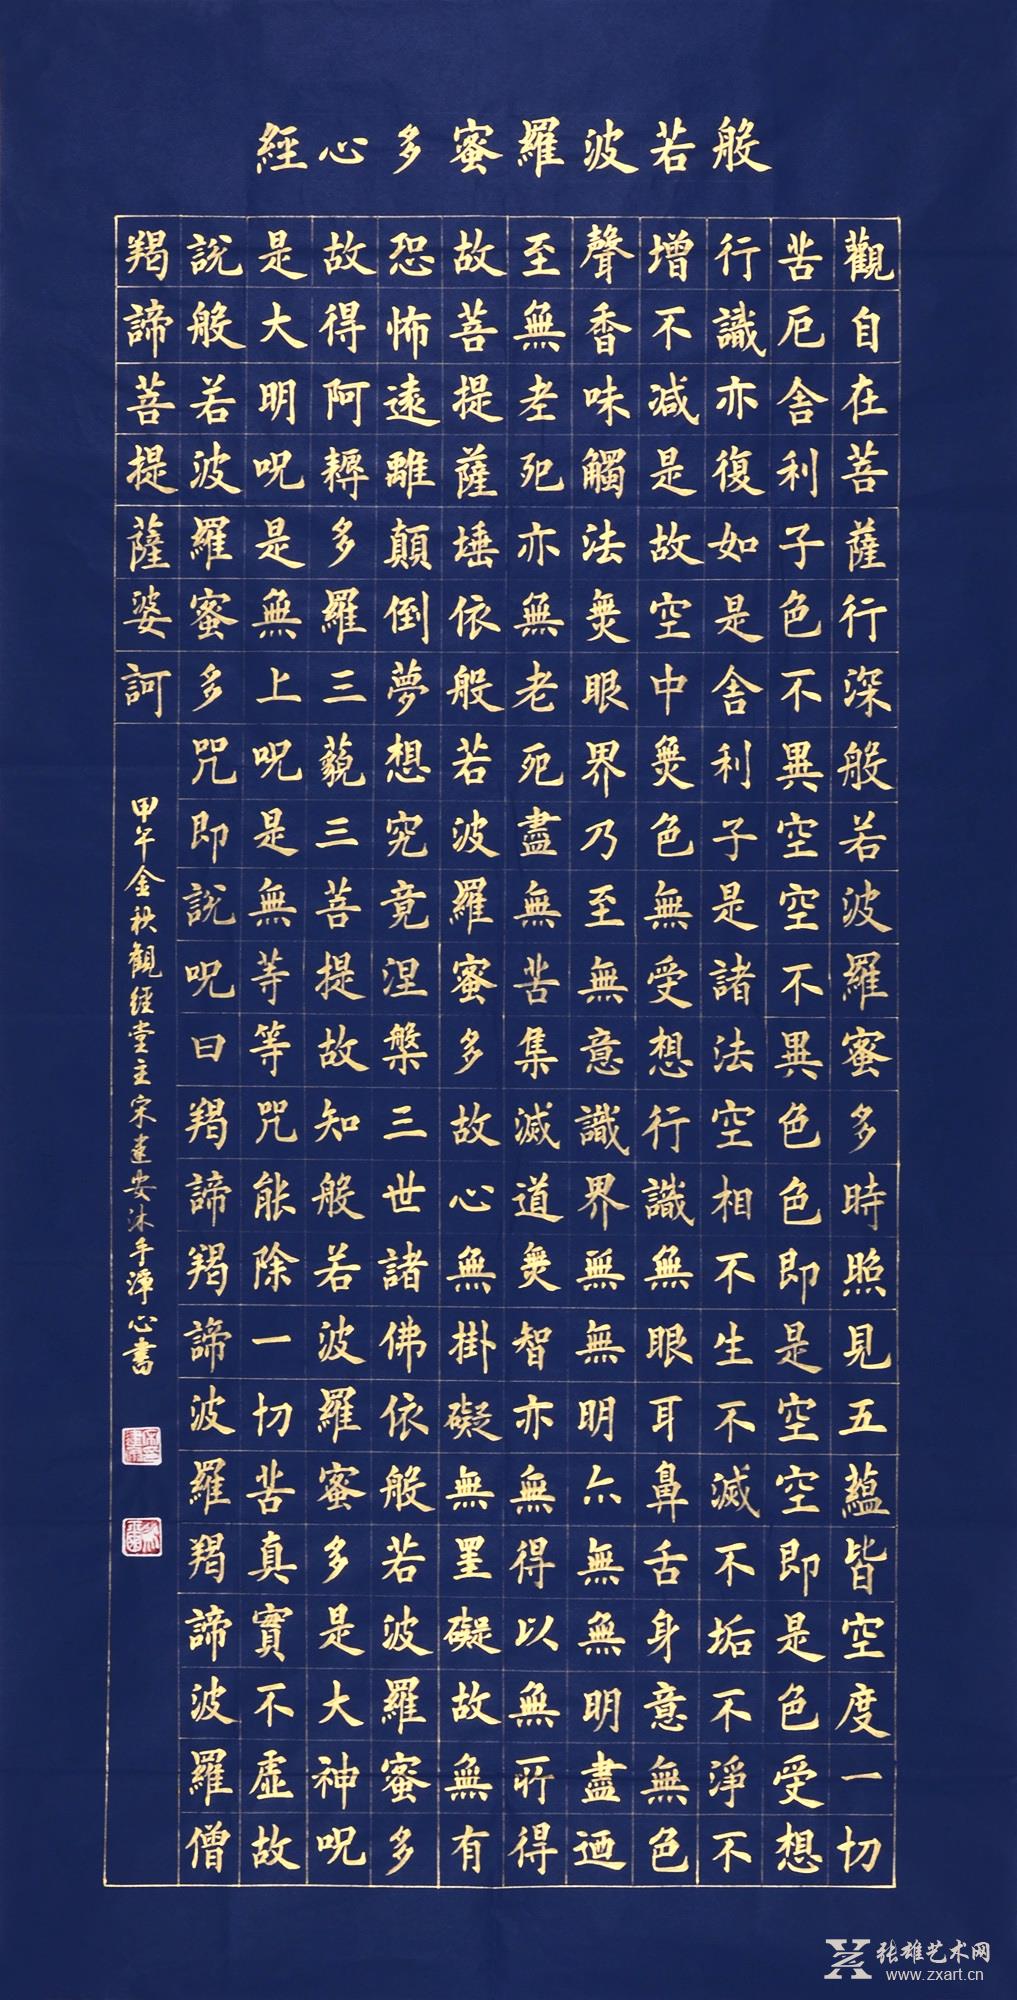 般若波羅蜜多心經
觀自在菩薩行深般若波羅蜜多時照見五蘊皆空度一切
苦厄舍利子色不異空空不異色色即是空空即是色受想
行識亦復如是舍利子是諸法空相不生不滅不垢不淨不
增不減是故空中無色無受想行識無眼耳鼻舌身意無色
聲香味觸法無眼界乃至無意識界無無明亦無無明盡迺
至無老死亦無老死盡無苦集滅道無智亦無得以無所得
故菩提薩埵依般若波羅蜜多故心無掛礙無罣礙故無有
恐怖遠離顛倒夢想究竟涅槃三世諸佛依般若波羅蜜多
故得阿耨多羅三藐三菩提故知般若波羅蜜多是大神呪
是大明呪是無上呪是無等等咒能除一切苦真實不虛故
說般若波羅蜜多咒即說呪曰羯諦羯諦波羅羯諦波羅僧
羯諦菩提薩婆訶
甲午金秋觀經堂主宋建安沐手潭心書
张雄艺术网
www.zxart.cn